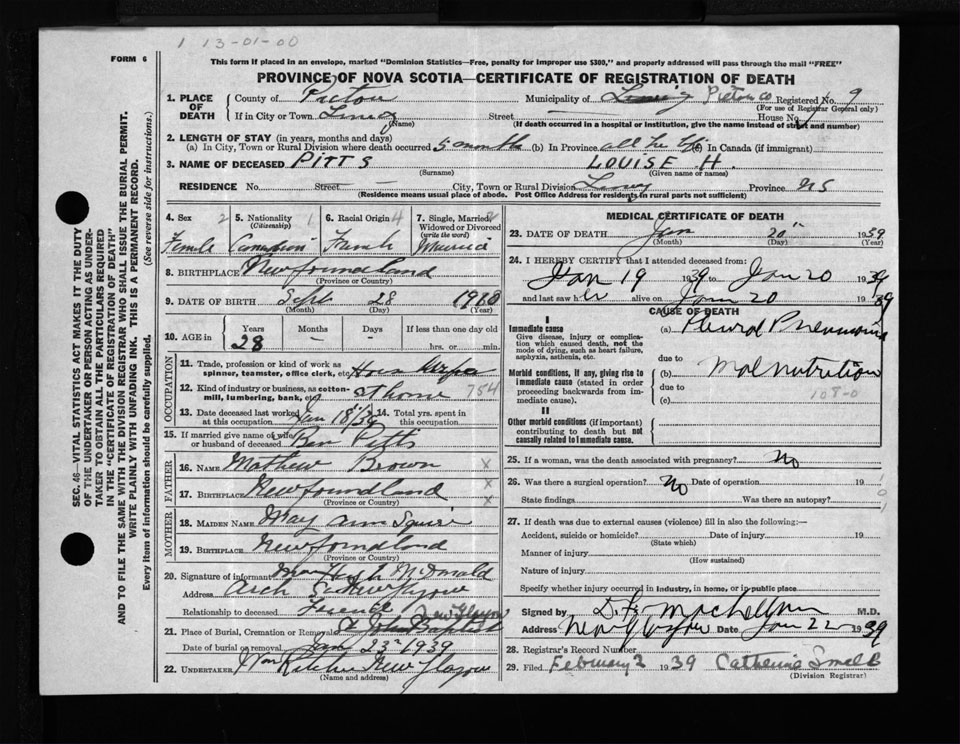 1 13-01-00
FORM 6
This form if placed in an envelope, marked "Dominion Statistics—Free, penalty for improper use $300," and properly addressed will pass through the mail "FREE"
PROVINCE OF NOVA SCOTIA—CERTIFICATE OF REGISTRATION OF DEATH
1. PLACE OF DEATH
County of Pictou Municipality of Pictou Co Registered No. 9
(For use of Registrar General only)
If in City or Town Street House No.
(Name) (If death occurred in a hospital or institution, give the name instead of street and number)
2. LENGTH OF STAY (in years, months and days)
(a) In City, Town or Rural Division where death occurred 5 months (b) In Province all her life (c) In Canada (if immigrant)
3. NAME OF DECEASED PITTS LOUISE H.
(Surname) (Given name or names)
RESIDENCE No. Street — City, Town or Rural Division Province NS
(Residence means usual place of abode. Post Office Address for residents in rural parts not sufficient)
4. Sex 2 5. Nationality 1 6. Racial Origin 4 7. Single, Married, Widowed or Divorced
(Citizenship) (write the word)
Female Canadian French Married
8. BIRTHPLACE Newfoundland
(Province or Country)
9. DATE OF BIRTH Sept 28 1910
(Month) (Day) (Year)
10. AGE in Years Months Days If less than one day old
28 — — hrs. or min.
OCCUPATION
11. Trade, profession or kind of work as spinner, teamster, office clerk, etc. House Keeper
12. Kind of industry or business, as cotton-mill, lumbering, bank, etc. at home 754
13. Date deceased last worked at this occupation Jan 18/39 14. Total yrs. spent in this occupation
15. If married give name of wife or husband of deceased Ben Pitts
FATHER
16. NAME Mathew Brown x
17. BIRTHPLACE Newfoundland x
(Province or Country) x
MOTHER
18. MAIDEN NAME May Ann Squire
19. BIRTHPLACE Newfoundland
(Province or Country)
20. Signature of informant Hugh McDonald
Address New Glasgow
Relationship to deceased
New Glasgow
21. Place of Burial, Cremation or Removal St John Baptist
Date of burial or removal Jan 23 1939
22. UNDERTAKER New Glasgow
(Name and address)
MEDICAL CERTIFICATE OF DEATH
23. DATE OF DEATH Jan 20 1939
(Month) (Day) (Year)
24. I HEREBY CERTIFY that I attended deceased from:
Jan 19 1939 to Jan 20 1939
and last saw her alive on Jan 20 1939
CAUSE OF DEATH
I
Immediate cause (a) Pneumonia
Give disease, injury or complication which caused death, not the mode of dying, such as heart failure, asphyxia, asthenia, etc.
due to
Morbid conditions, if any, giving rise to immediate cause (stated in order proceeding backwards from immediate cause).
(b) Malnutrition
due to 108-0
(c)
II
Other morbid conditions (if important) contributing to death but not causally related to immediate cause.
25. If a woman, was the death associated with pregnancy? No
26. Was there a surgical operation? No Date of operation 19
State findings Was there an autopsy?
27. If death was due to external causes (violence) fill in also the following:—
Accident, suicide or homicide? Date of injury 19
(State which)
Manner of injury
(How sustained)
Nature of injury
Specify whether injury occurred in industry, in home, or in public place
Signed by M.D.
Address New Glasgow Date Jan 22 1939
28. Registrar's Record Number
29. Filed February 2 1939 Catherine
(Division Registrar)
SEC. 46—VITAL STATISTICS ACT MAKES IT THE DUTY
OF THE UNDERTAKER OR PERSON ACTING AS UNDER-
TAKER TO OBTAIN ALL THE PARTICULARS REQUIRED
IN THE "CERTIFICATE OF REGISTRATION OF DEATH"
AND TO FILE THE SAME WITH THE DIVISION REGISTRAR WHO SHALL ISSUE THE BURIAL PERMIT.
WRITE PLAINLY WITH UNFADING INK. THIS IS A PERMANENT RECORD.
Every item of information should be carefully supplied. (See reverse side for instructions.)